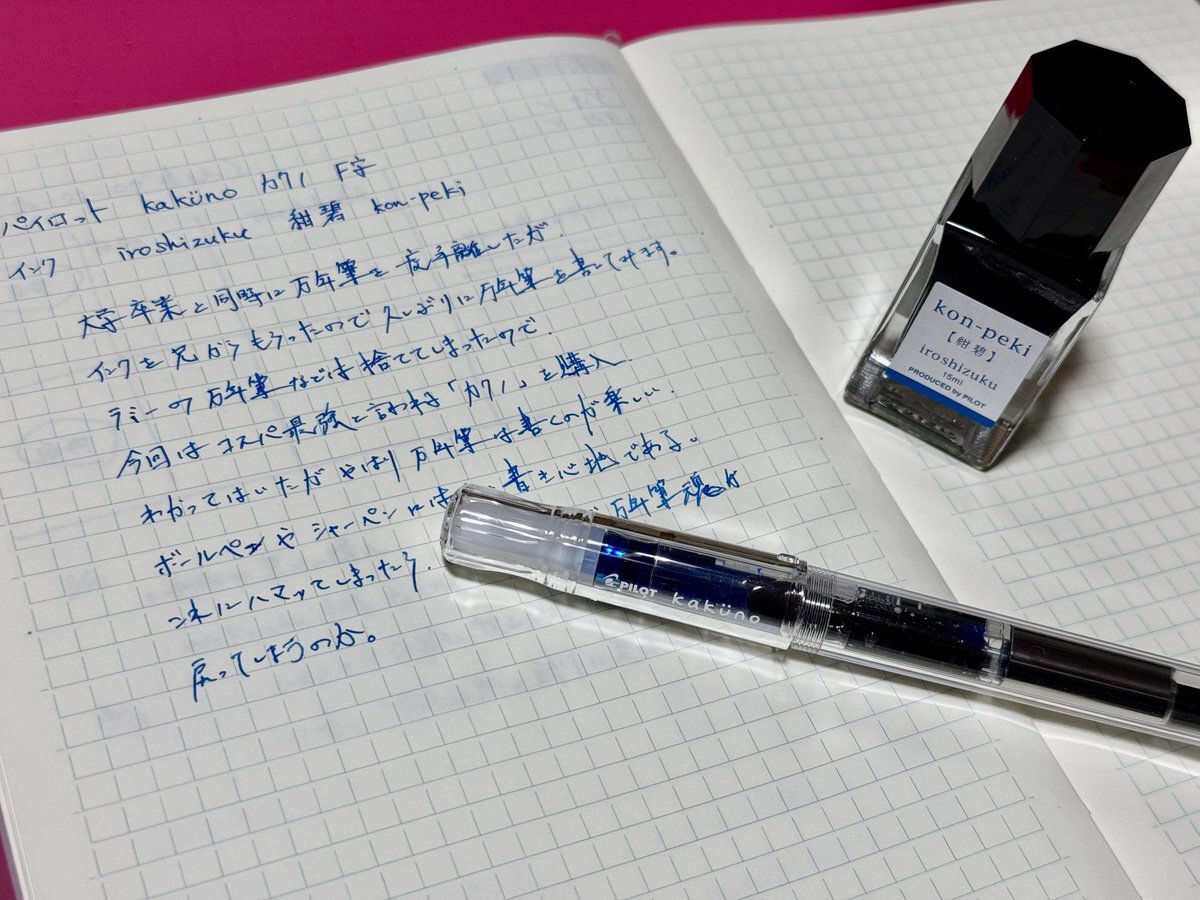 パイロット kaküno カクノ F字
インク iroshizuku 紺碧 kon-peki
大学卒業と同時に万年筆を一度手離したが、
インクを兄からもらったので久しぶりに万年筆を書いてみます。
ラミーの万年筆などは捨ててしまったので、
今回はコスパ最強と言われる「カクノ」を購入
わかってはいたがやはり万年筆は書くのが楽しい。
ボールペンやシャーペンには 書き心地である。
これにハマってしまったら、 万年筆魂が
戻ってしまうのか。
PILOT kaküno
kon-peki
【紺碧】
iroshizuku
15ml
PRODUCED by PILOT